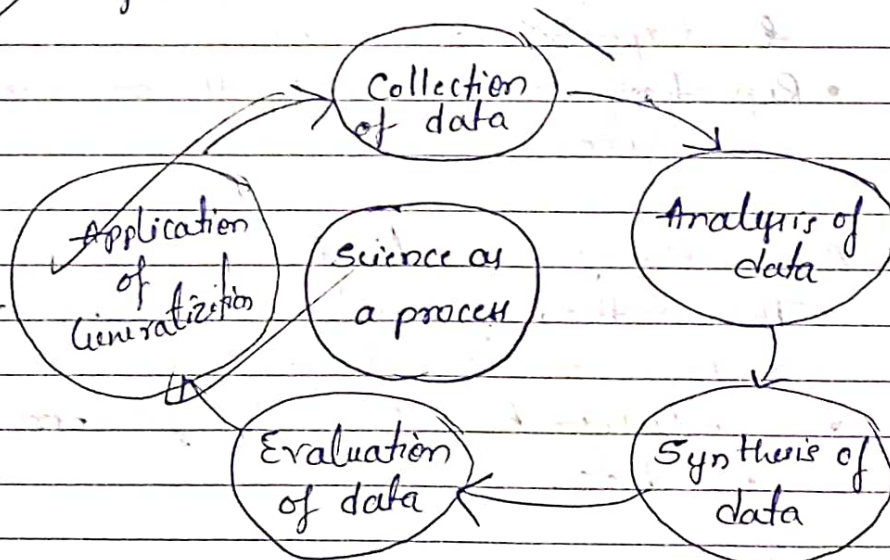 Collection
of data
Analysis of
data
Synthesis of
data
Evaluation
of data
Application
of
Generalization
Science as
a process